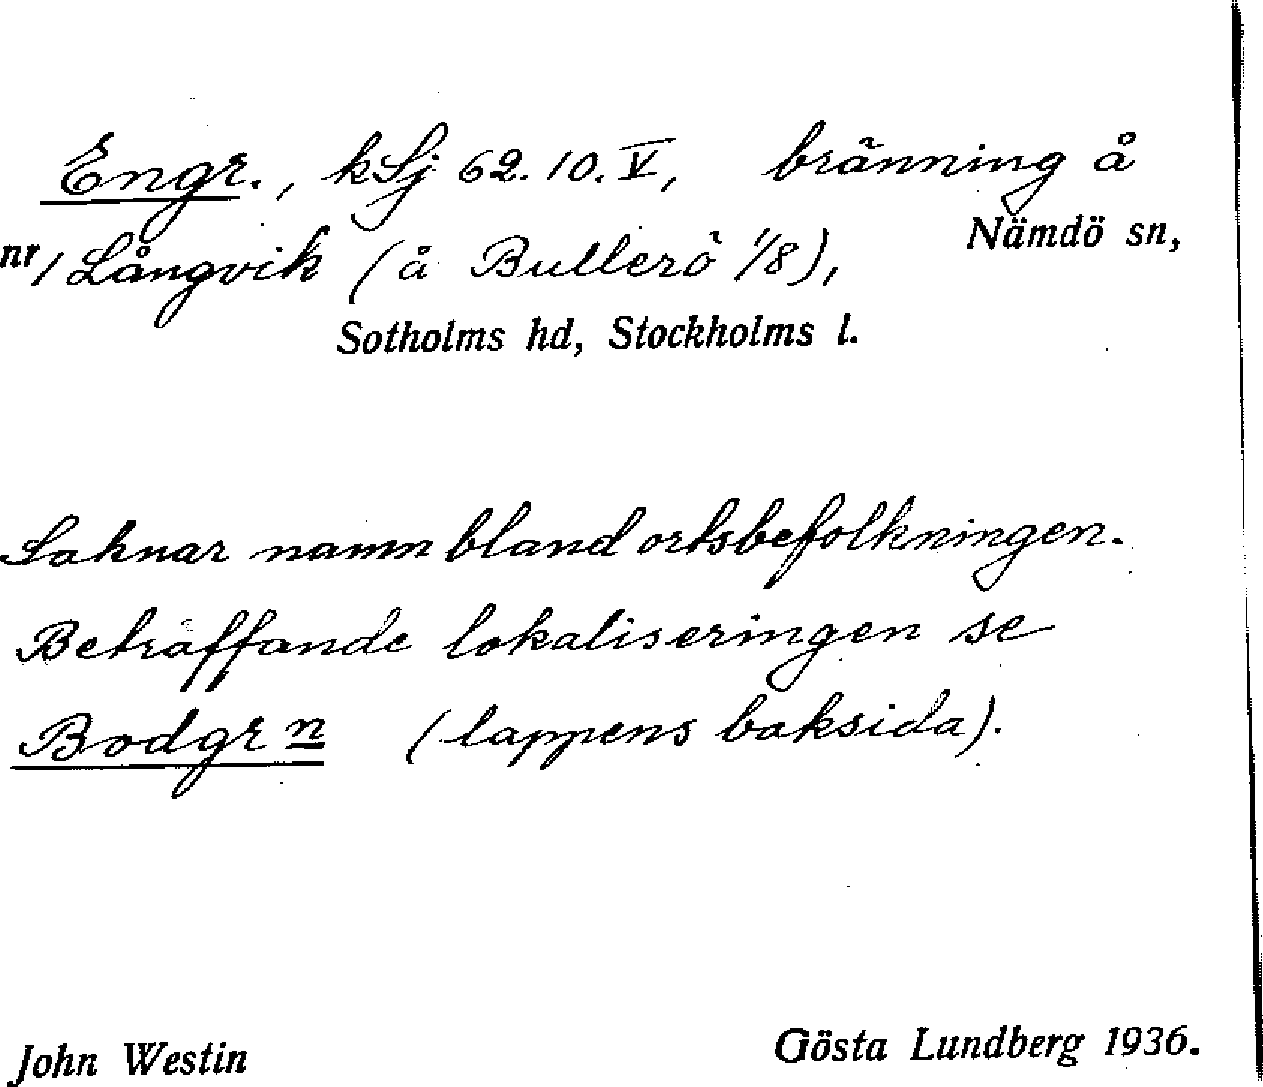 Engr., kSj 62.10.V, bränning å
nr 1 Långvik (å Bullerö 1/8), Nämdö sn,
Sotholms hd, Stockholms l.
Saknar namn bland ortsbefolkningen.
Beträffande lokaliseringen se
Bodgrn (lappens baksida).
John Westin Gösta Lundberg 1936.